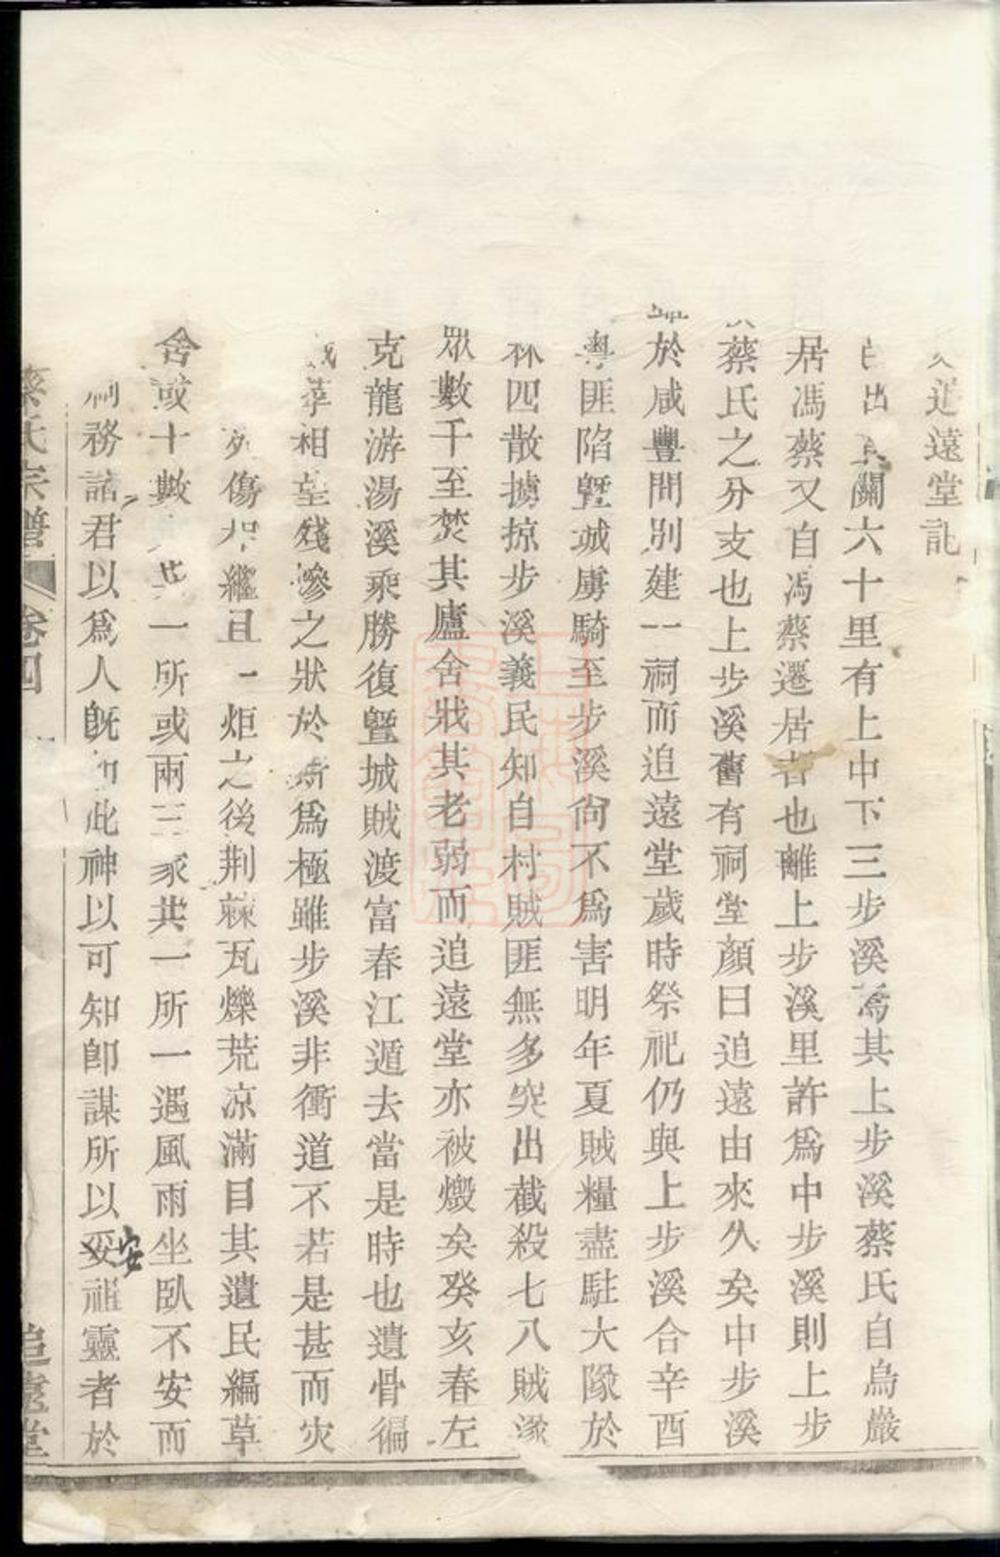 追遠堂記
出關六十里有上中下三步溪焉其上步溪蔡氏自烏巖
居馮蔡又自馮蔡遷居者也離上步溪里許爲中步溪則上步
蔡氏之分支也上步溪舊有祠堂顏曰追遠由來久矣中步溪
於咸豐間別建一祠而追遠堂歲時祭祀仍與上步溪合辛酉
粵匪陷曁城虜騎至步溪尙不爲害明年夏賊糧盡駐大隊於
林四散擄掠步溪義民知自村賊匪無多突出截殺七八賊遂
眾數千至焚其廬舍戕其老弱而追遠堂亦被燬矣癸亥春左
克龍游湯溪乘勝復曁城賊渡富春江遁去當是時也遺骨徧
莩相望殘慘之狀於斯爲極雖步溪非衝道不若是甚而灾
傷繼且一炬之後荆棘瓦爍荒凉滿目其遺民編草
舍或十數一所或兩三家共一所一遇風雨坐臥不安而
祠務諸君以爲人旣如此神以可知卽謀所以妥安祖靈者於
蔡氏宗譜 卷四 追遠堂